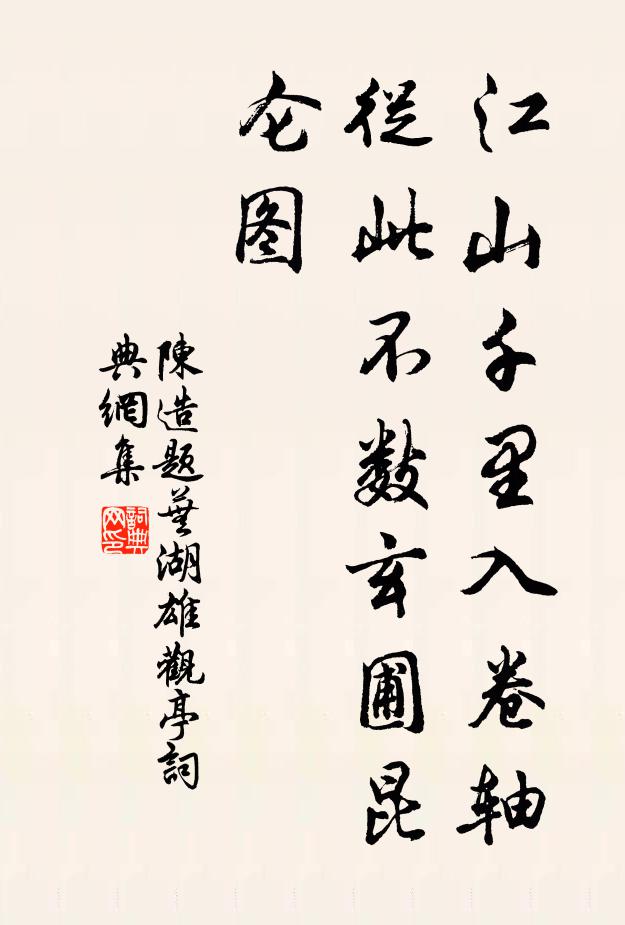 江山千里入卷軸
從此不数玄圃昆
仑图
陳造題蕪湖雄觀亭詞
典網集
詞典
网印